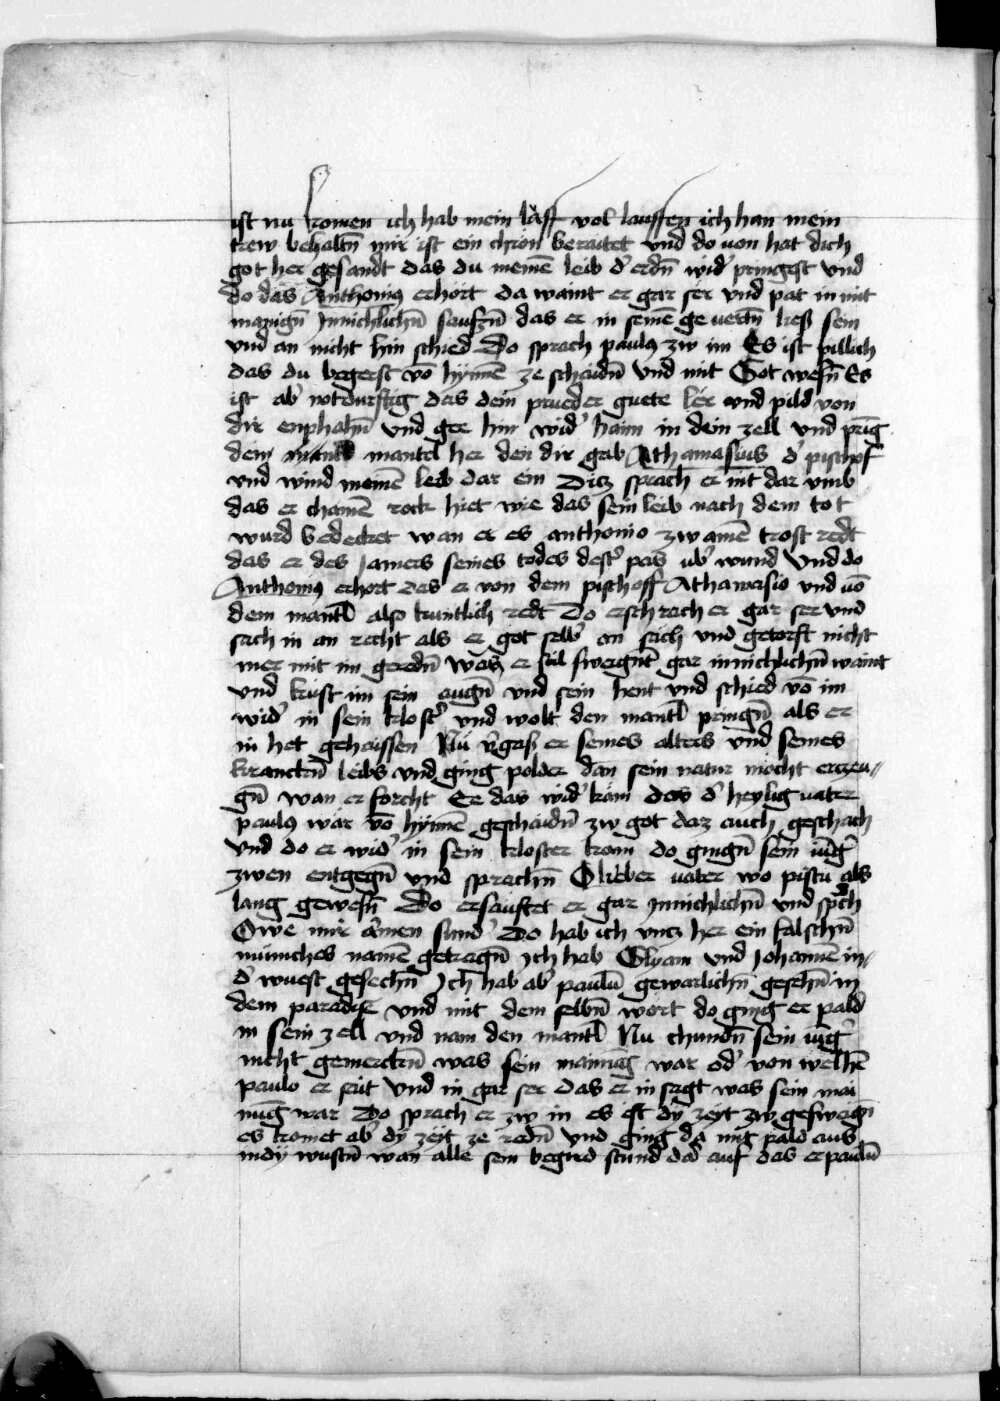 ist nu komen ich hab mein läff vol lauffen ich han mein
trew behaltn̄ mir ist ein chron beraitet vnd do von hat dich
got her gesandt das du meinē leib d' erdn̄ wid' pringest vnd
do das Anthonius erhort da waint er gar ser vnd pat in mit
manign̄ Innichlichn̄ seufzn̄ das er in seinē geuertn̄ ließ sein
vnd an nicht hin schied Do sprach paulus zw im Es ist pillich
das du begerst vō hynnē ze schaidn̄ vnd mit Got wesn̄ Es
ist ab' notdurftig das dein prueder guete ler vnd pild von
dir enphahn̄ vnd gee hin wid' haim in dein zell vnd prīg
den mantel her den dir gab Athanasius d' pischof
vnd wind meinē leib dar ein Ditz sprach er nit dar vmb
das er chainē rock hiet wie das sein leib nach dem tot
wurd bedecket wan er es anthonio zw ainē trost redt
das er des Jamers seines todes dest' pas ub' wund Vnd do
Anthonius erhort das er von dem pischoff Athanasio vnd vō
dem mantl also kuntlich redt Do erschrach er gar ser vnd
sach in an recht als er got selb' an sich vnd getorst nicht
mer mit im geredn̄ was er stil sweignt gar innichlichn̄ waint
vnd kust im sein augn̄ vnd sein hent vnd schied vō im
wid' in sein klost' vnd wolt den mantl pringn̄ als er
in het gehaissen Nu v'gas er seines alters vnd seines
kranckn̄ leibs vnd ging polder dan sein natur mocht erczeu//
gn̄ wan er forcht Ee das wid' kam das d' heylig vater
paulus war vō hynnē geschaidn̄ zw got daz auch geschach
vnd do er wid' in sein kloster kom do gingn̄ sein iūg'
zwen entgegn̄ vnd sprachn̄ O lieber vater wo pistu als
lang gewesn̄ Do ersauftet er gar Innichlichn̄ vnd sprch
Owe mir armen sund' Do hab ich vncz her ein falschn̄
muniches namen getragn̄ Ich hab Elyam vnd Johannē in//
d' wuest gesechn̄ Ich hab ab' paulū gewarlichn̄ gesehn̄ in
dem paradise vnd mit dem selbn̄ wort do ging er pald
in sein zell vnd nam den mantl Nu chundn̄ sein iūg'
nicht gemerckn̄ was sein mainūg war od' von welhē
paulo er seit Vnd in gar ser das er in sagt was sein mai
nūg war Do sprach er zw in es ist dy zeyt zw gesweign̄
es komet ab' dy zeyt ze redn̄ vnd ging da mit pald aus
in dy wustn̄ wan alle sein begird stund dar auf das er paulū